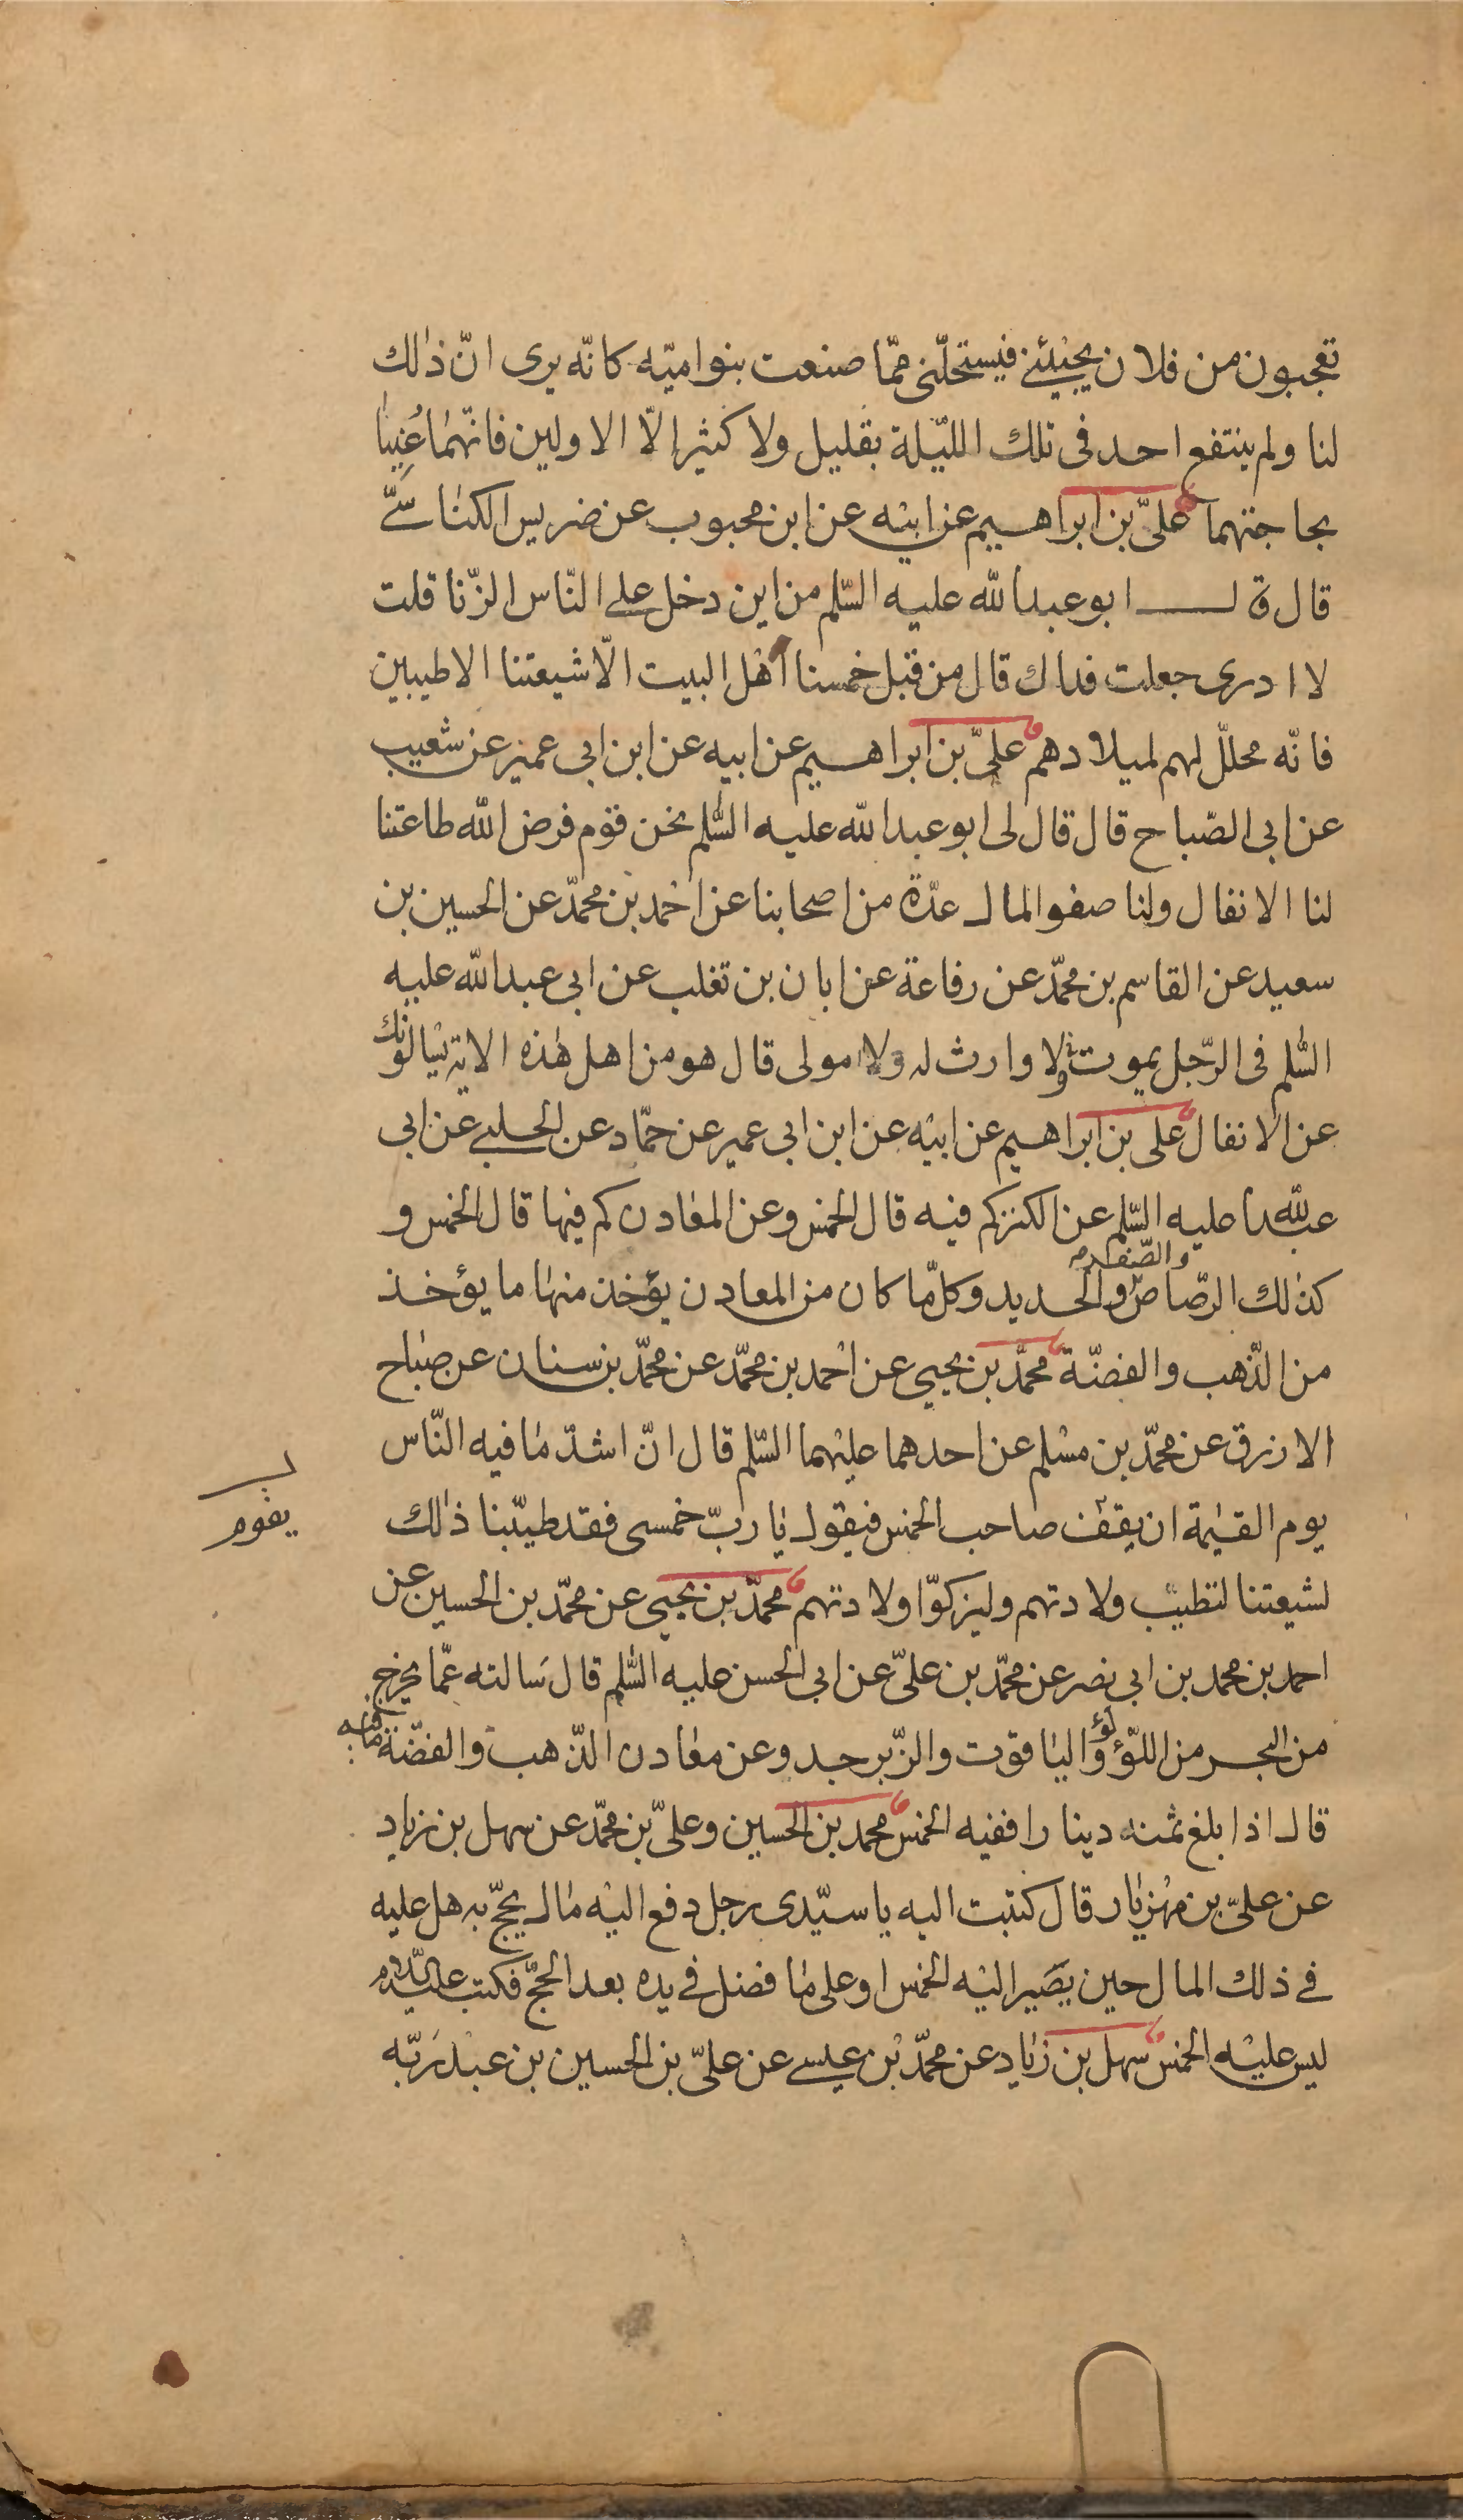 تعجبون من فلان يجيئنى فيستحلّنى ممّا صنعت بنو اميّه كانّه يرى انّ ذالك
لنا ولم ينتفع احد فى تلك الليّلة بقليل ولا كثير إلّا الاولين فانّهما غنيا
بحاجتهما علىّ بن ابراهيم عن ابيه عن ابن محبوب عن ضريس الكناسىّ
قال قال ابو عبد الله عليه السّلم من اين دخل على النّاس الزّنا قلت
لا ادرى جعلت فداك قال من قبل خمسنا اهل البيت الّا شيعتنا الاطيبين
فانّه محلّل لهم لميلادهم علىّ بن ابراهيم عن ابيه عن ابن ابى عمير عن شعيب
عن ابى الصّباح قال قال لى ابو عبد الله عليه السّلم نحن قوم فرض الله طاعتنا
لنا الانفال ولنا صفو المال عدّة من اصحابنا عن احمد بن محمّد عن الحسين بن
سعيد عن القاسم بن محمّد عن رفاعة عن ابان بن تغلب عن ابى عبد الله عليه
السّلم فى الرّجل يموت ولا وارث له ولا مولى قال هو من اهل هذه الاية يسالونك
عن الانفال على بن ابراهيم عن ابيه عن ابن ابى عمير عن حمّاد عن الحلبى عن ابى
عبد الله عليه السّلم عن الكنز كم فيه قال الخمس وعن المعادن كم فيها قال الخمس و
كذلك الرّصاص والصّفر والحديد وكلّما كان من المعادن يؤخذ منها ما يؤخذ
من الذّهب والفضّة محمّد بن يحيى عن احمد بن محمّد عن محمّد بن سنان عن صباح
الازرق عن محمّد بن مسلم عن احدهما عليهما السّلم قال انّ اشدّ ما فيه النّاس
يوم القيمة ان يقف صاحب الخمس فيقول يا ربّ خمسى فقد طيّبنا ذالك
يقوم
لشيعتنا لتطيب ولادتهم وليزكوا ولادتهم محمّد بن يحيى عن محمّد بن الحسين عن
احمد بن محمد بن ابى نصر عن محمّد بن علىّ عن ابى الحسن عليه السّلم قال سالته عمّا يخرج
من البحر من اللؤلؤ واليا قوت والزّبرجد وعن معادن الذّهب والفضّة ما فيه
قال اذا بلغ ثمنه دينارا ففيه الخمس محمد بن الحسين وعلىّ بن محمّد عن سهل بن زياد
عن علىّ بن مهزيار قال كتبت اليه يا سيّدى رجل دفع اليه مال يحجّ به هل عليه
فى ذلك المال حين يصير اليه الخمس او على ما فضل فى يده بعد الحجّ فكتب عليه السّلام
ليس عليه الخمس سهل بن زياد عن محمّد بن عيسى عن علىّ بن الحسين بن عبد ربّه